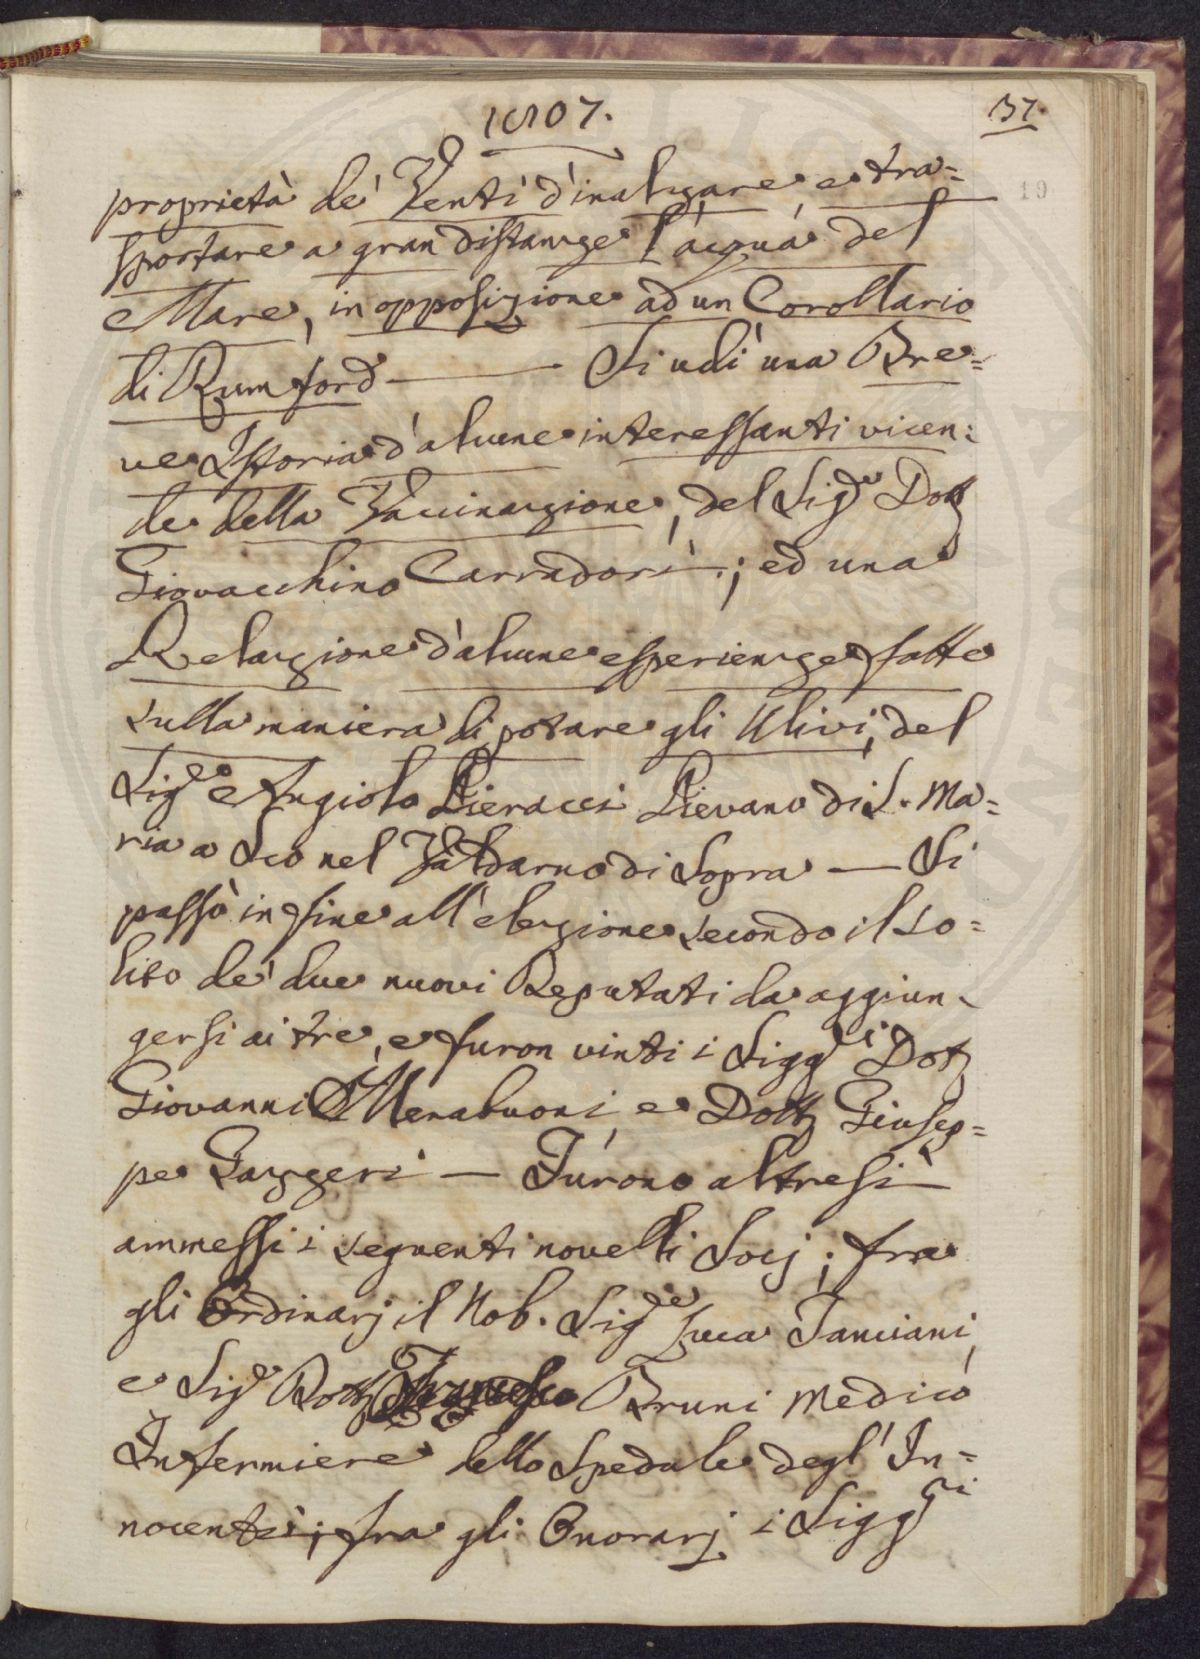 1807.
37.
19
proprietà de' Venti d'inalzare, e tra=
sportare a gran distanze l'acqua del
Mare, in opposizione ad un Corollario
di Rumford — Si udì una Bre=
ve Istoria d'alcune interessanti vicen=
de della Vaccinazione, del Sig.e Dott
Giovacchino Carradori; ed una
Relazione d'alcune esperienze fatte
sulla maniera di potare gli Ulivi, del
Sig.e Angiolo Pieracci Pievano di S. Ma=
ria a Sco nel Valdarno di Sopra — Si
passò in fine all'elezione secondo il so=
lito de' due nuovi Deputati da aggiun=
gersi ai tre, e furon vinti i Sigg.i Dott
Giovanni Menabuoni, e Dott Giusep=
pe Gazzeri — Furono altresì
ammessi i seguenti novelli Socj; fra
gli Ordinarj il Nob. Sig.e Luca Tanciani,
e Sig.e Dott Francesco Bruni Medico
Infermiere dello Spedale degl' In=
nocenti; fra gli Onorarj i Sigg.ri